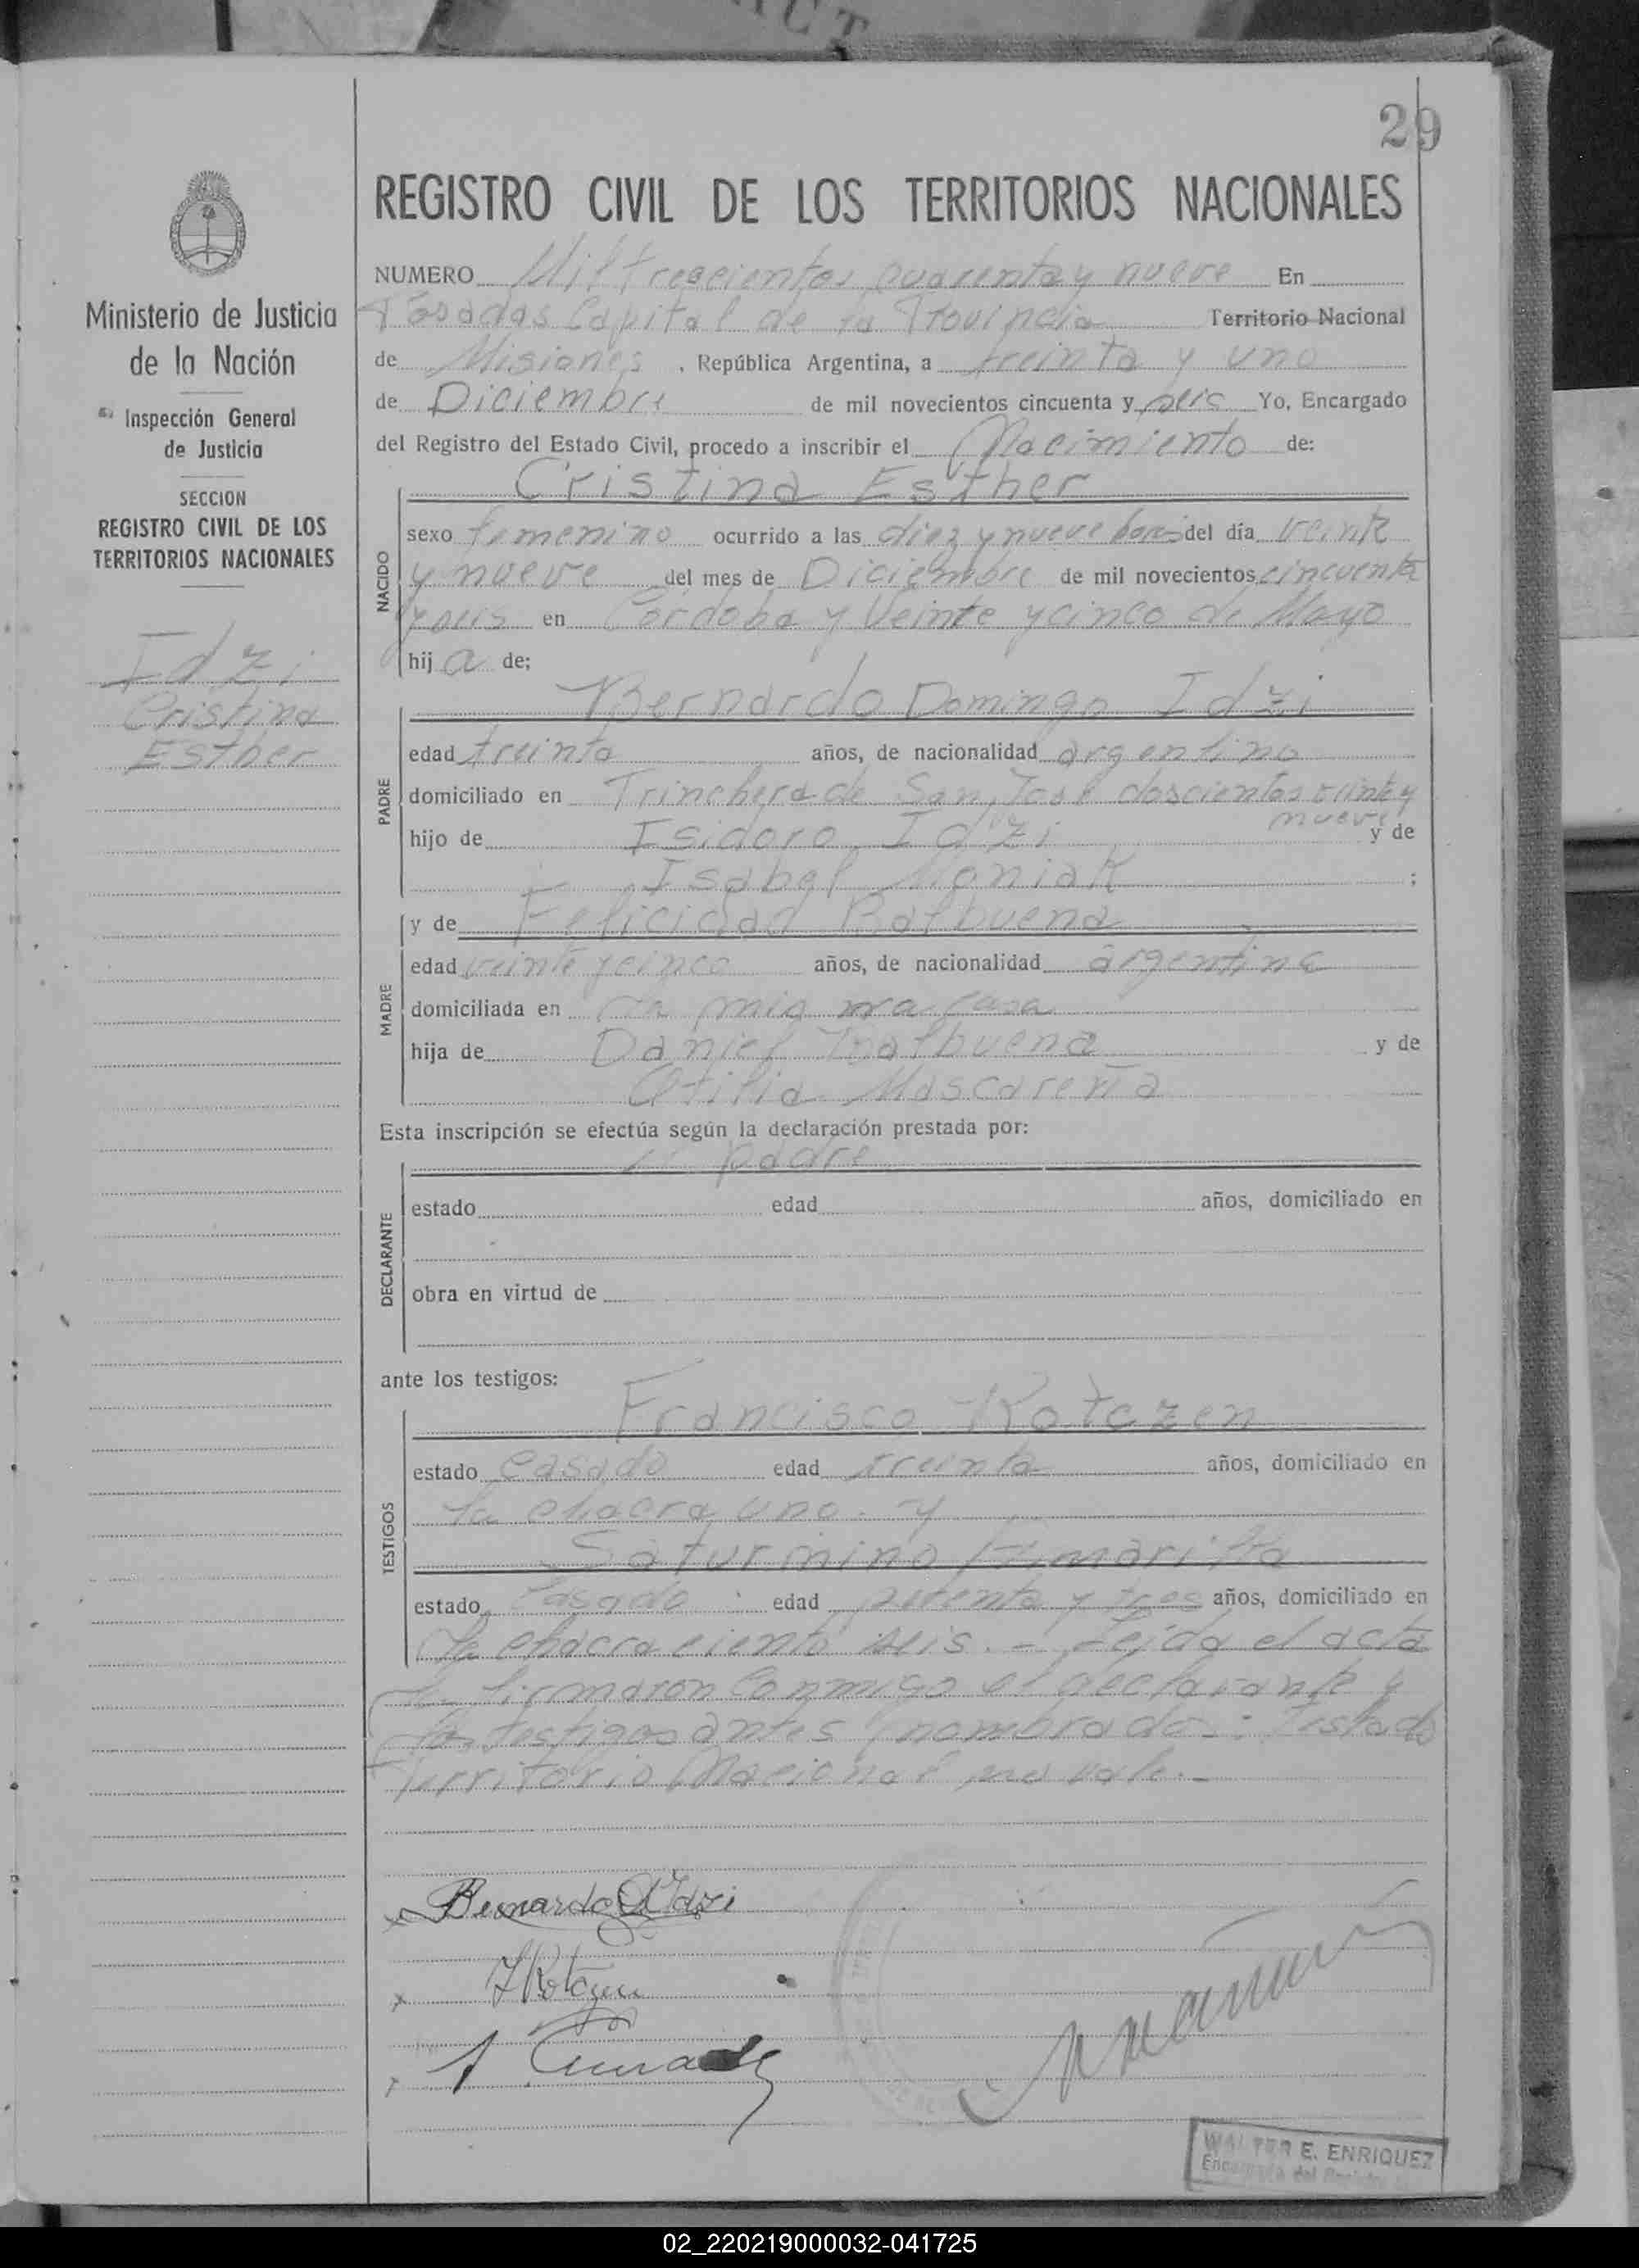 29
REGISTRO CIVIL DE LOS TERRITORIOS NACIONALES
NUMERO Mil trescientos cuarenta y nueve En
Posadas Capital de la Provincia Territorio Nacional
de Misiones . República Argentina, a treinta y uno
de Diciembre de mil novecientos cincuenta y seis Yo, Encargado
del Registro del Estado Civil, procedo a inscribir el Nacimiento de:
Cristina Esther
NACIDO
sexo femenino ocurrido a las diez y nueve horas del día veinte
y nueve del mes de Diciembre de mil novecientos cincuenta
y seis en Córdoba y Veinte y cinco de Mayo
hij a de;
Bernardo Domingo Idzi
PADRE
edad treinta años, de nacionalidad argentino
domiciliado en Trinchera de San José doscientos veinte y
nueve
hijo de Isidoro Idzi y de
Isabel ;
y de Felicidad Balbuena
MADRE
edad veinte y cinco años, de nacionalidad argentina
domiciliada en la misma casa
hija de Daniel Balbuena y de
Otilia Mascareña
Esta inscripción se efectúa según la declaración prestada por:
el padre
DECLARANTE
estado edad años, domiciliado en
obra en virtud de
ante los testigos:
Francisco Rotczen
TESTIGOS
estado casado edad treinta años, domiciliado en
la chacra uno. y
Saturnino
estado casado edad setenta y tres años, domiciliado en
la chacra ciento seis. - Leida el acta
la firmaron conmigo el declarante y
los testigos antes nombrados: Testado
Territorio Nacional no vale. -
Bernardo D Idzi
WALTER E. ENRIQUEZ
Encargado del Registro
Ministerio de Justicia
de la Nación
Inspección General
de Justicia
SECCION
REGISTRO CIVIL DE LOS
TERRITORIOS NACIONALES
Idzi
Cristina
Esther
02_220219000032-041725